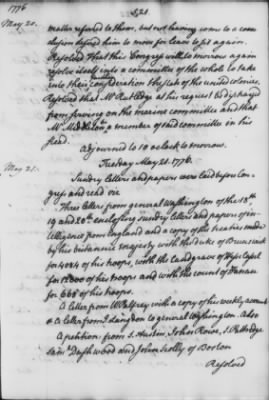 1776
521.
May 20.
matter refered to them, but not having come to a con
clusion desired him to move for leave to sit again.
Resolved That this Congress will to morrow again
resolve itself into a committee of the whole to take
into their farther consideration the state of the united colonies.
Resolved that Mr Rutledge at his request be discharged
from serving on the marine committee and that
Mr Middleton a member of said committee in his
stead.
Adjourned to 10 oClock to morrow.
Tuesday May 21. 1776.
May 21.
Sundry letters and papers were laid before Con
gress and read viz
Three letters from general Washington of the 18th
19 and 20th enclosing sundry letters and papers of in
telligence from england and a copy of the treaties made
by his britannic majesty with the duke of Brunswick
for 4084 of his troops, with the Landgrave of Hesse Cassel
for 12000 of his troops and with the count of Hanau
for 668 of his troops.
A letter from W Palfrey with a copy of his weekly account
& A letter from J Langdon to general Washington Also
A petition from S. Austin, John Rowe, S. Partridge
Saml Dashwood and John Scolly of Boston
Resolved